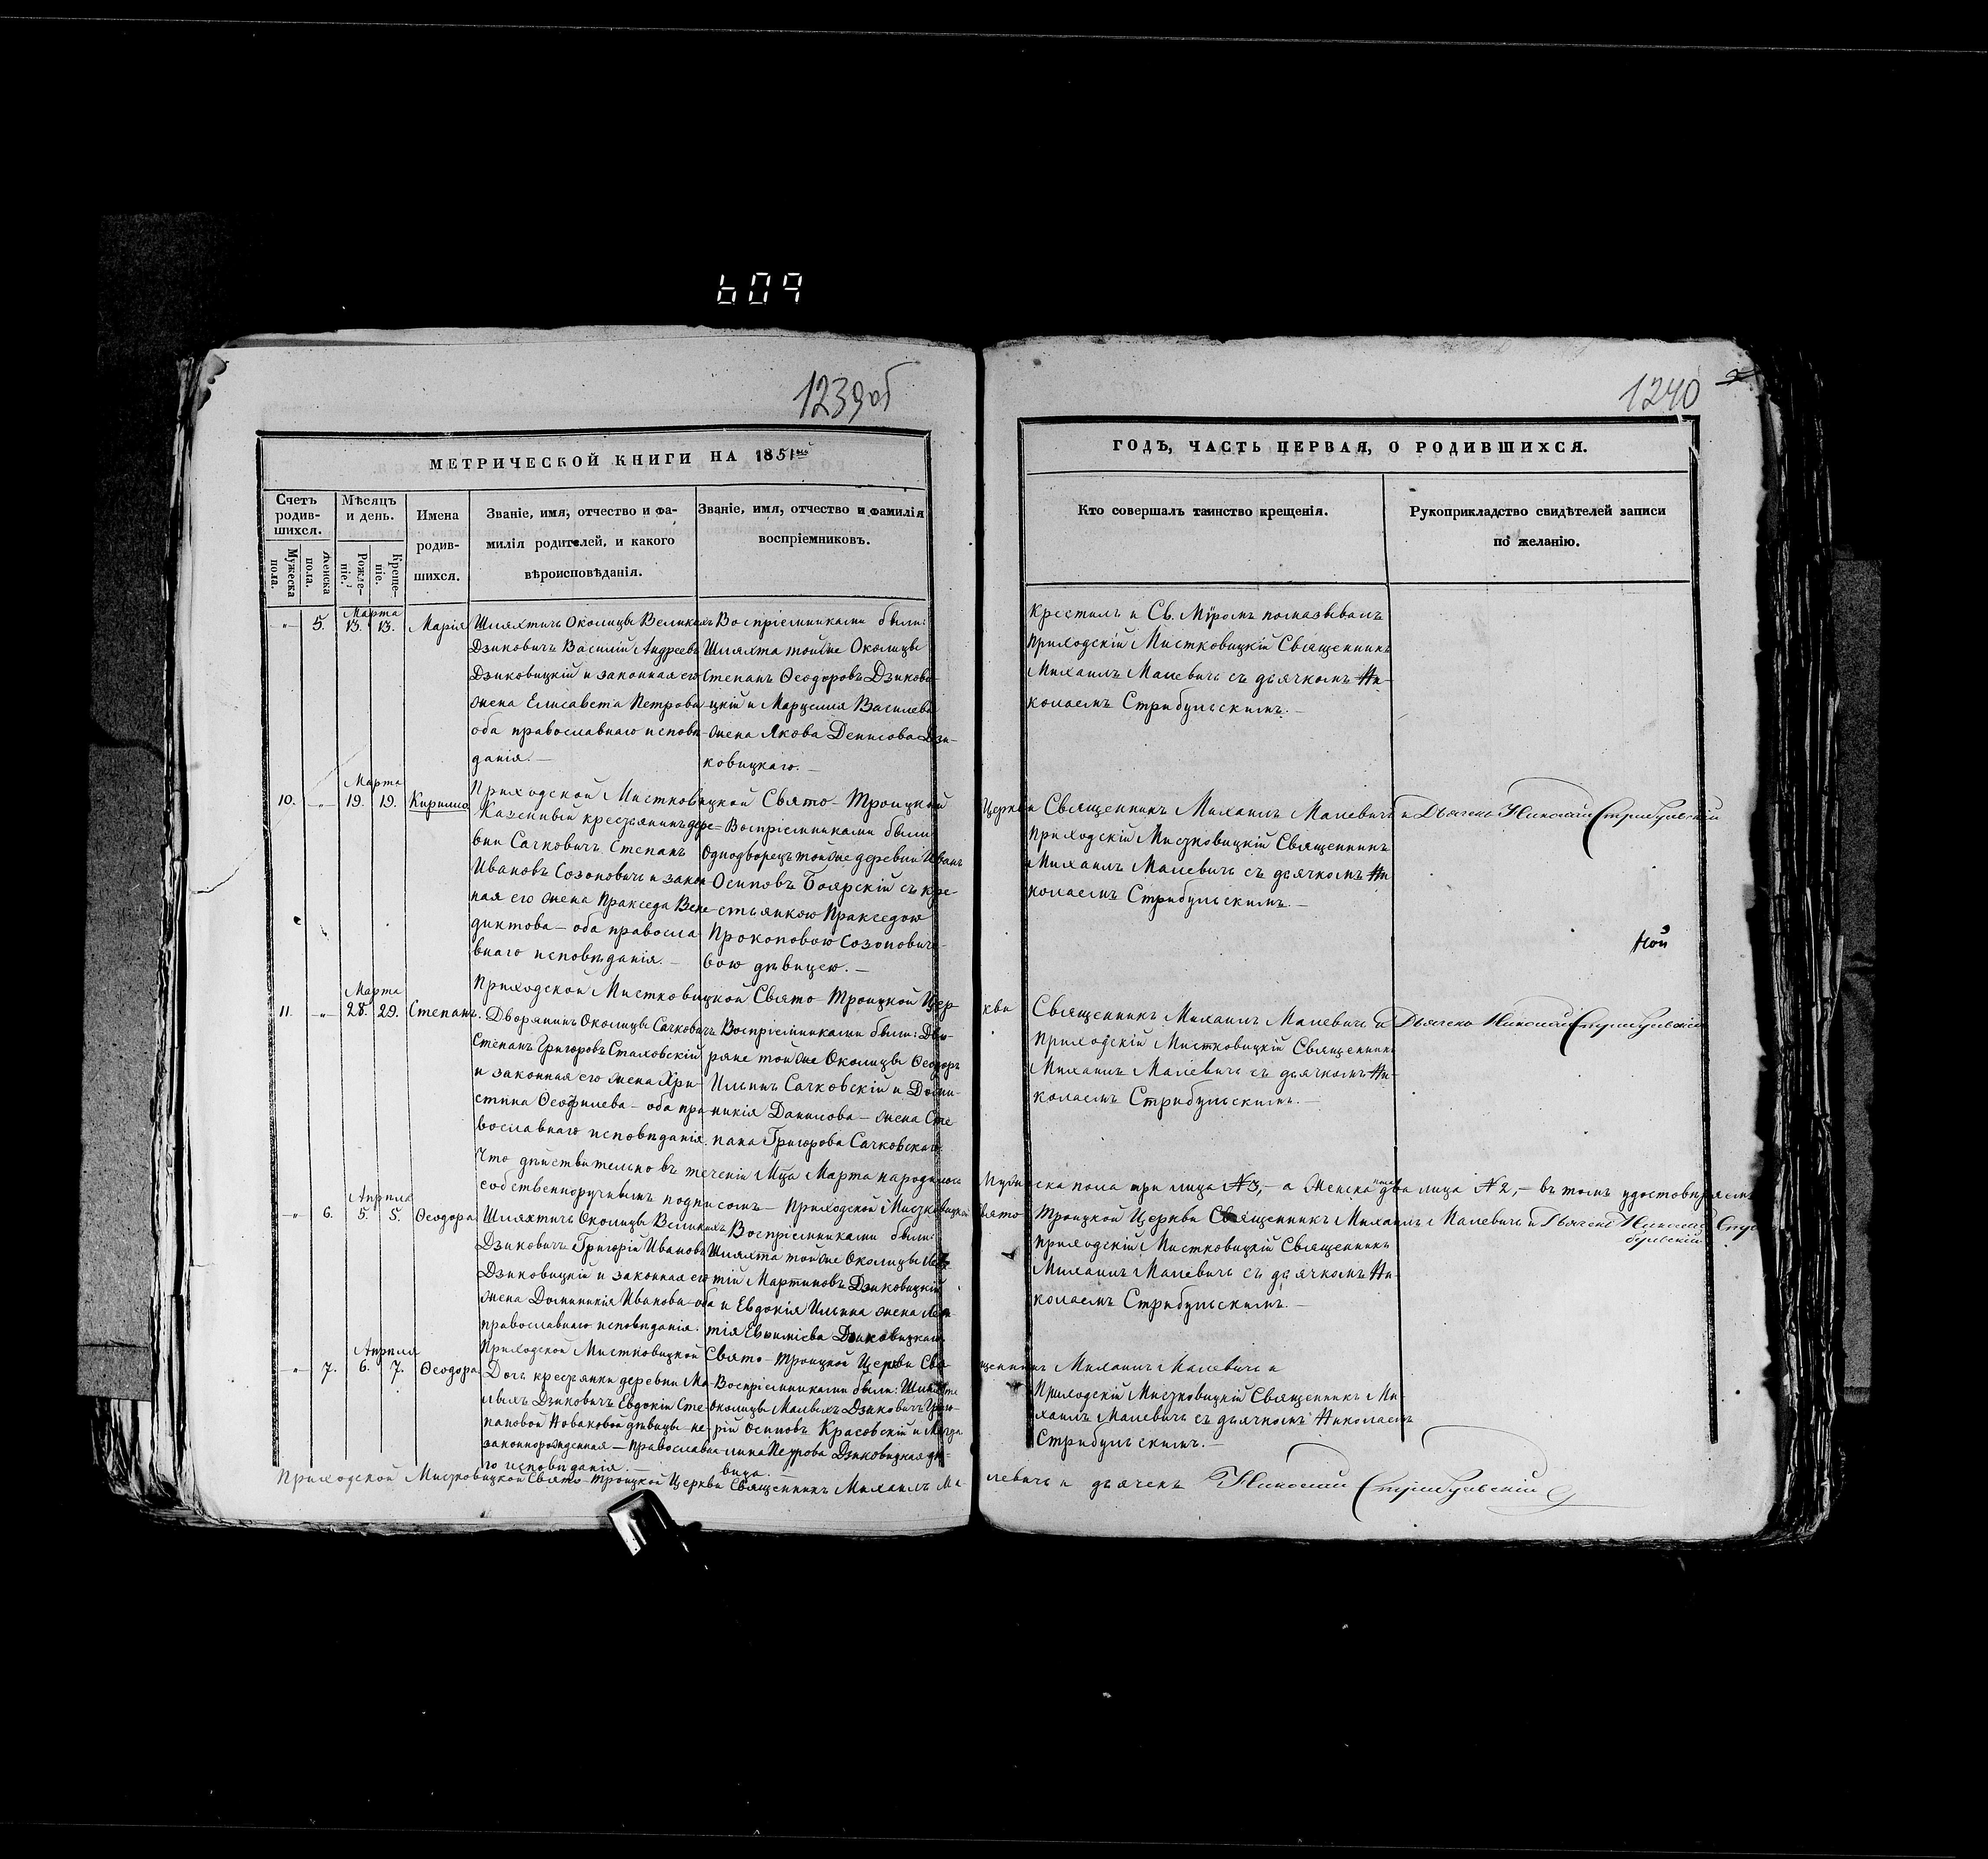 609
1239об
1240
МЕТРИЧЕСКОЙ КНИГИ НА 1851вый
ГОДЪ, ЧАСТЬ ПЕРВАЯ, О РОДИВШИХСЯ.
Счетъ родив-шихся.
Мужеска пола.
Женска пола.
Мѣсяцъ и день.
Рожде-ніе.
Креще-ніе.
Имена
родив-
шихся.
Званіе, имя, отчество и фа-
милія родителей, и какого
вѣроисповѣданія.
Званіе, имя, отчество и фамилія
воспріемниковъ.
Кто совершалъ таинство крещенія.
Рукоприкладство свидѣтелей записи
по желанію.
Марта
" 5. 13. 13. Марія
Шляхтичъ Околицы Великихъ
Дзиковичъ Василій Андреевъ
Дзиковицкій и законная его
жена Елисавета Петрова
оба православнаго исповѣ-
данія. —
Воспріемниками были:
Шляхта тойже Околицы
Степанъ Ѳеодоровъ Дзикови-
цкій и Марцелля Василева
жена Якова Денисова Дзи-
ковицкаго. —
Крестилъ и Св. Мѵромъ помазывалъ
Приходскій Мистковицкій Священникъ
Михаилъ Малевичъ съ дьячкомъ Ни-
колаемъ Стрибульскимъ. —
Приходской Мистковицкой Свято-Троицкой Церкви Священникъ Михаилъ Малевичъ и Дьячекъ Николай Стрибульскій
Марта
10. " 19. 19. Кирилла
Казенный крестьянинъ дере-
вни Сачковичъ Степанъ
Ивановъ Созоновичъ и закон-
ная его жена Пракседа Вене-
диктова — оба правосла-
внаго исповѣданія. —
Воспріемниками были
Однодворецъ тойже деревни Иванъ
Осиповъ Боярскій съ кре-
стьянкою Пракседою
Прокоповою Созонович-
вою дѣвицею. —
Приходскій Мистковицкій Священникъ
Михаилъ Малевичъ съ дьячкомъ Ни-
колаемъ Стрибульскимъ. —
Приходской Мистковицкой Свято Троицкой Цер-
кви Священникъ Михаилъ Малевичъ и Дьячекъ Николай Стрибульскій
Марта
11. " 28. 29. Степанъ.
Дворянинъ Околицы Сачковичъ
Степанъ Григоровъ Стаховскій
и законная его жена Хри-
стина Ѳеофилева — оба пра-
вославнаго исповѣданія.
Воспріемниками были: Дво-
ряне тойже Околицы Ѳеодоръ
Ильинъ Сачковскій и Доми-
никія Данилова — жена Сте-
пана Григорова Сачковскаго.
Приходскій Мистковицкій Священникъ
Михаилъ Малевичъ съ дьячкомъ Ни-
колаемъ Стрибульскимъ. —
Что дѣйствительно въ теченіи Мца Марта народилось
Мужеска пола три лица № 3, — а Женска пола два лица № 2, — въ томъ удостовѣряемъ
собственноручнымъ подписомъ — Приходской Мистковицкой
Свято Троицкой Церкви Священникъ Михаилъ Малевичъ и Дьячекъ Николай Стри-
бульскій.
Апрѣля
" 6. 5. 5. Ѳеодора
Шляхтичъ Околицы Великихъ
Дзиковичъ Григорій Ивановъ
Дзиковицкій и законная его
жена Доминикія Иванова — оба
православнаго исповѣданія.
Воспріемниками были:
Шляхта тойже Околицы
тій Мартиновъ Дзиковицкій
и Евдокія Ильина жена
тія Евѳиміева Дзиковицкаго.
Приходскій Мистковицкій Священникъ
Михаилъ Малевичъ съ дьячкомъ Ни-
колаемъ Стрибульскимъ. —
Приходской Мистковицкой Свято-Троицкой Церкви Свя-
щенникъ Михаилъ Малевичъ и
Апрѣля
" 7. 6. 7. Ѳеодора
Дочь крестьянки деревни Ма-
лыхъ Дзиковичъ Евдокіи Сте-
пановой Новаковой дѣвицы не-
законнорожденная — Православна-
го исповѣданія. —
Воспріемниками были: Шляхта
околицы Малыхъ Дзиковичъ Григо-
рій Осиповъ Красовскій и Магда-
лина Петрова Дзиковицкая дѣ-
вица. —
Приходскій Мистковицкій Священникъ Ми-
хаилъ Малевичъ съ дьячкомъ Николаемъ
Стрибульскимъ. —
Приходской Мистковицкой Свято-Троицкой Церкви Священникъ Михаилъ Ма-
левичъ и дьячекъ Николай Стрибульскій